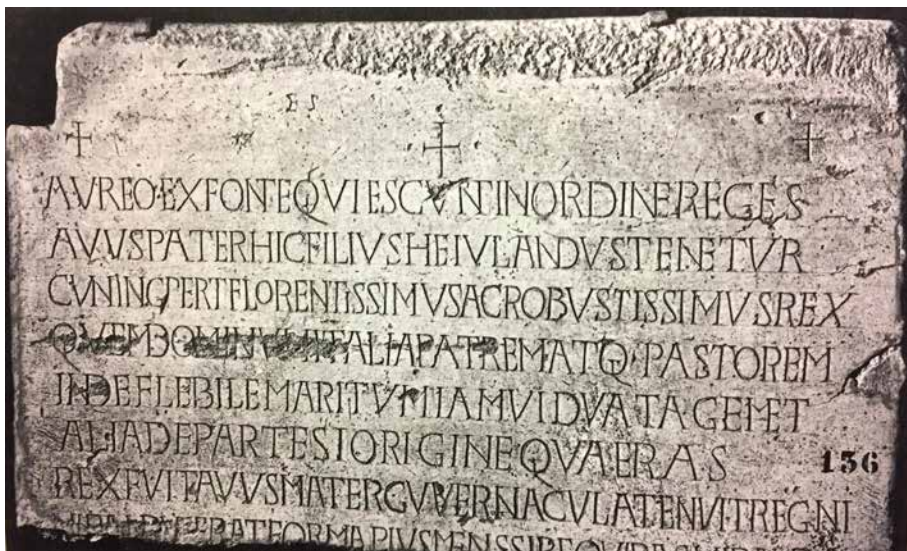 AVREO·EXFONTEQVIESCVNTINORDINEREGES
AVVSPATERHICFILIVSHEIVLANDVSTENETVR
CVNINCPERTFLORENTISSIMVSACROBVSTISSIMVSREX
QVEMDOMINVMITALIAPATREMATQ·PASTOREM
INDEFLEBILEMARITVMIAMVIDVATAGEMET
ALIADEPARTESIORIGINEQVAERAS
136
REXFVITAVVSMATERGVVERNACVLATENVITREGNI
ERATFORMAPIVSMENSSIREQVIRA